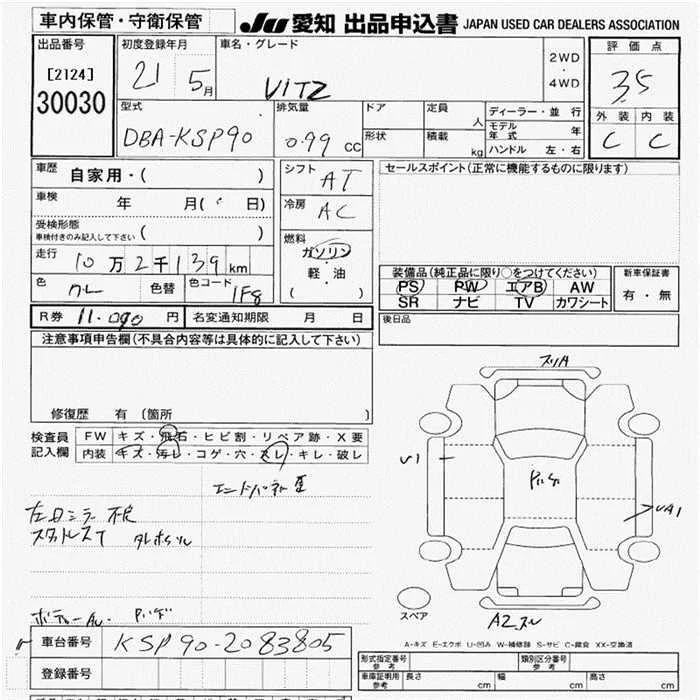 車内保管・守衛保管
JU 愛知 出品申込書 JAPAN USED CAR DEALERS ASSOCIATION
出品番号
[2124]
30030
初度登録年月
21 5月
車名・グレード
VITZ
2WD
・
4WD
評価点
3.5
外装 内装
C C
型式
DBA-KSP90
排気量
0.99 CC
ドア
形状
定員 人
積載 kg
ディーラー・並行
モデル年式 年
ハンドル 左・右
車歴 自家用・( )
車検 年 月( 日)
受検形態
車検付きのみ記入して下さい ( )
走行 10万2千139km
色 色替 色コード 1F8
シフト AT
冷房 AC
燃料
ガソリン
軽・油
( )
セールスポイント(正常に機能するものに限ります)
装備品(純正品に限り○をつけてください)
PS PW エアB AW
SR ナビ TV カワシート
新車保証書
有・無
R券 11.090円 名変通知期限 月 日
後日品
注意事項申告欄(不具合内容等は具体的に記入して下さい)
修復歴 有 〔箇所 〕
検査員記入欄
FW キズ・飛石・ヒビ割・リペア跡・X要
内装 キズ・汚レ・コゲ・穴・スレ・キレ・破レ
左ロミラー不良
U1
UA1
スペア
A2
A-キズ E-エクボ U-凹み W-補修跡 S-サビ C-腐食 XX-交換済
車台番号 KSP90-2083805
登録番号
形式指定番号
参考
類別区分番号
参考
車庫証明用
参考
長さ cm 幅 cm 高さ cm